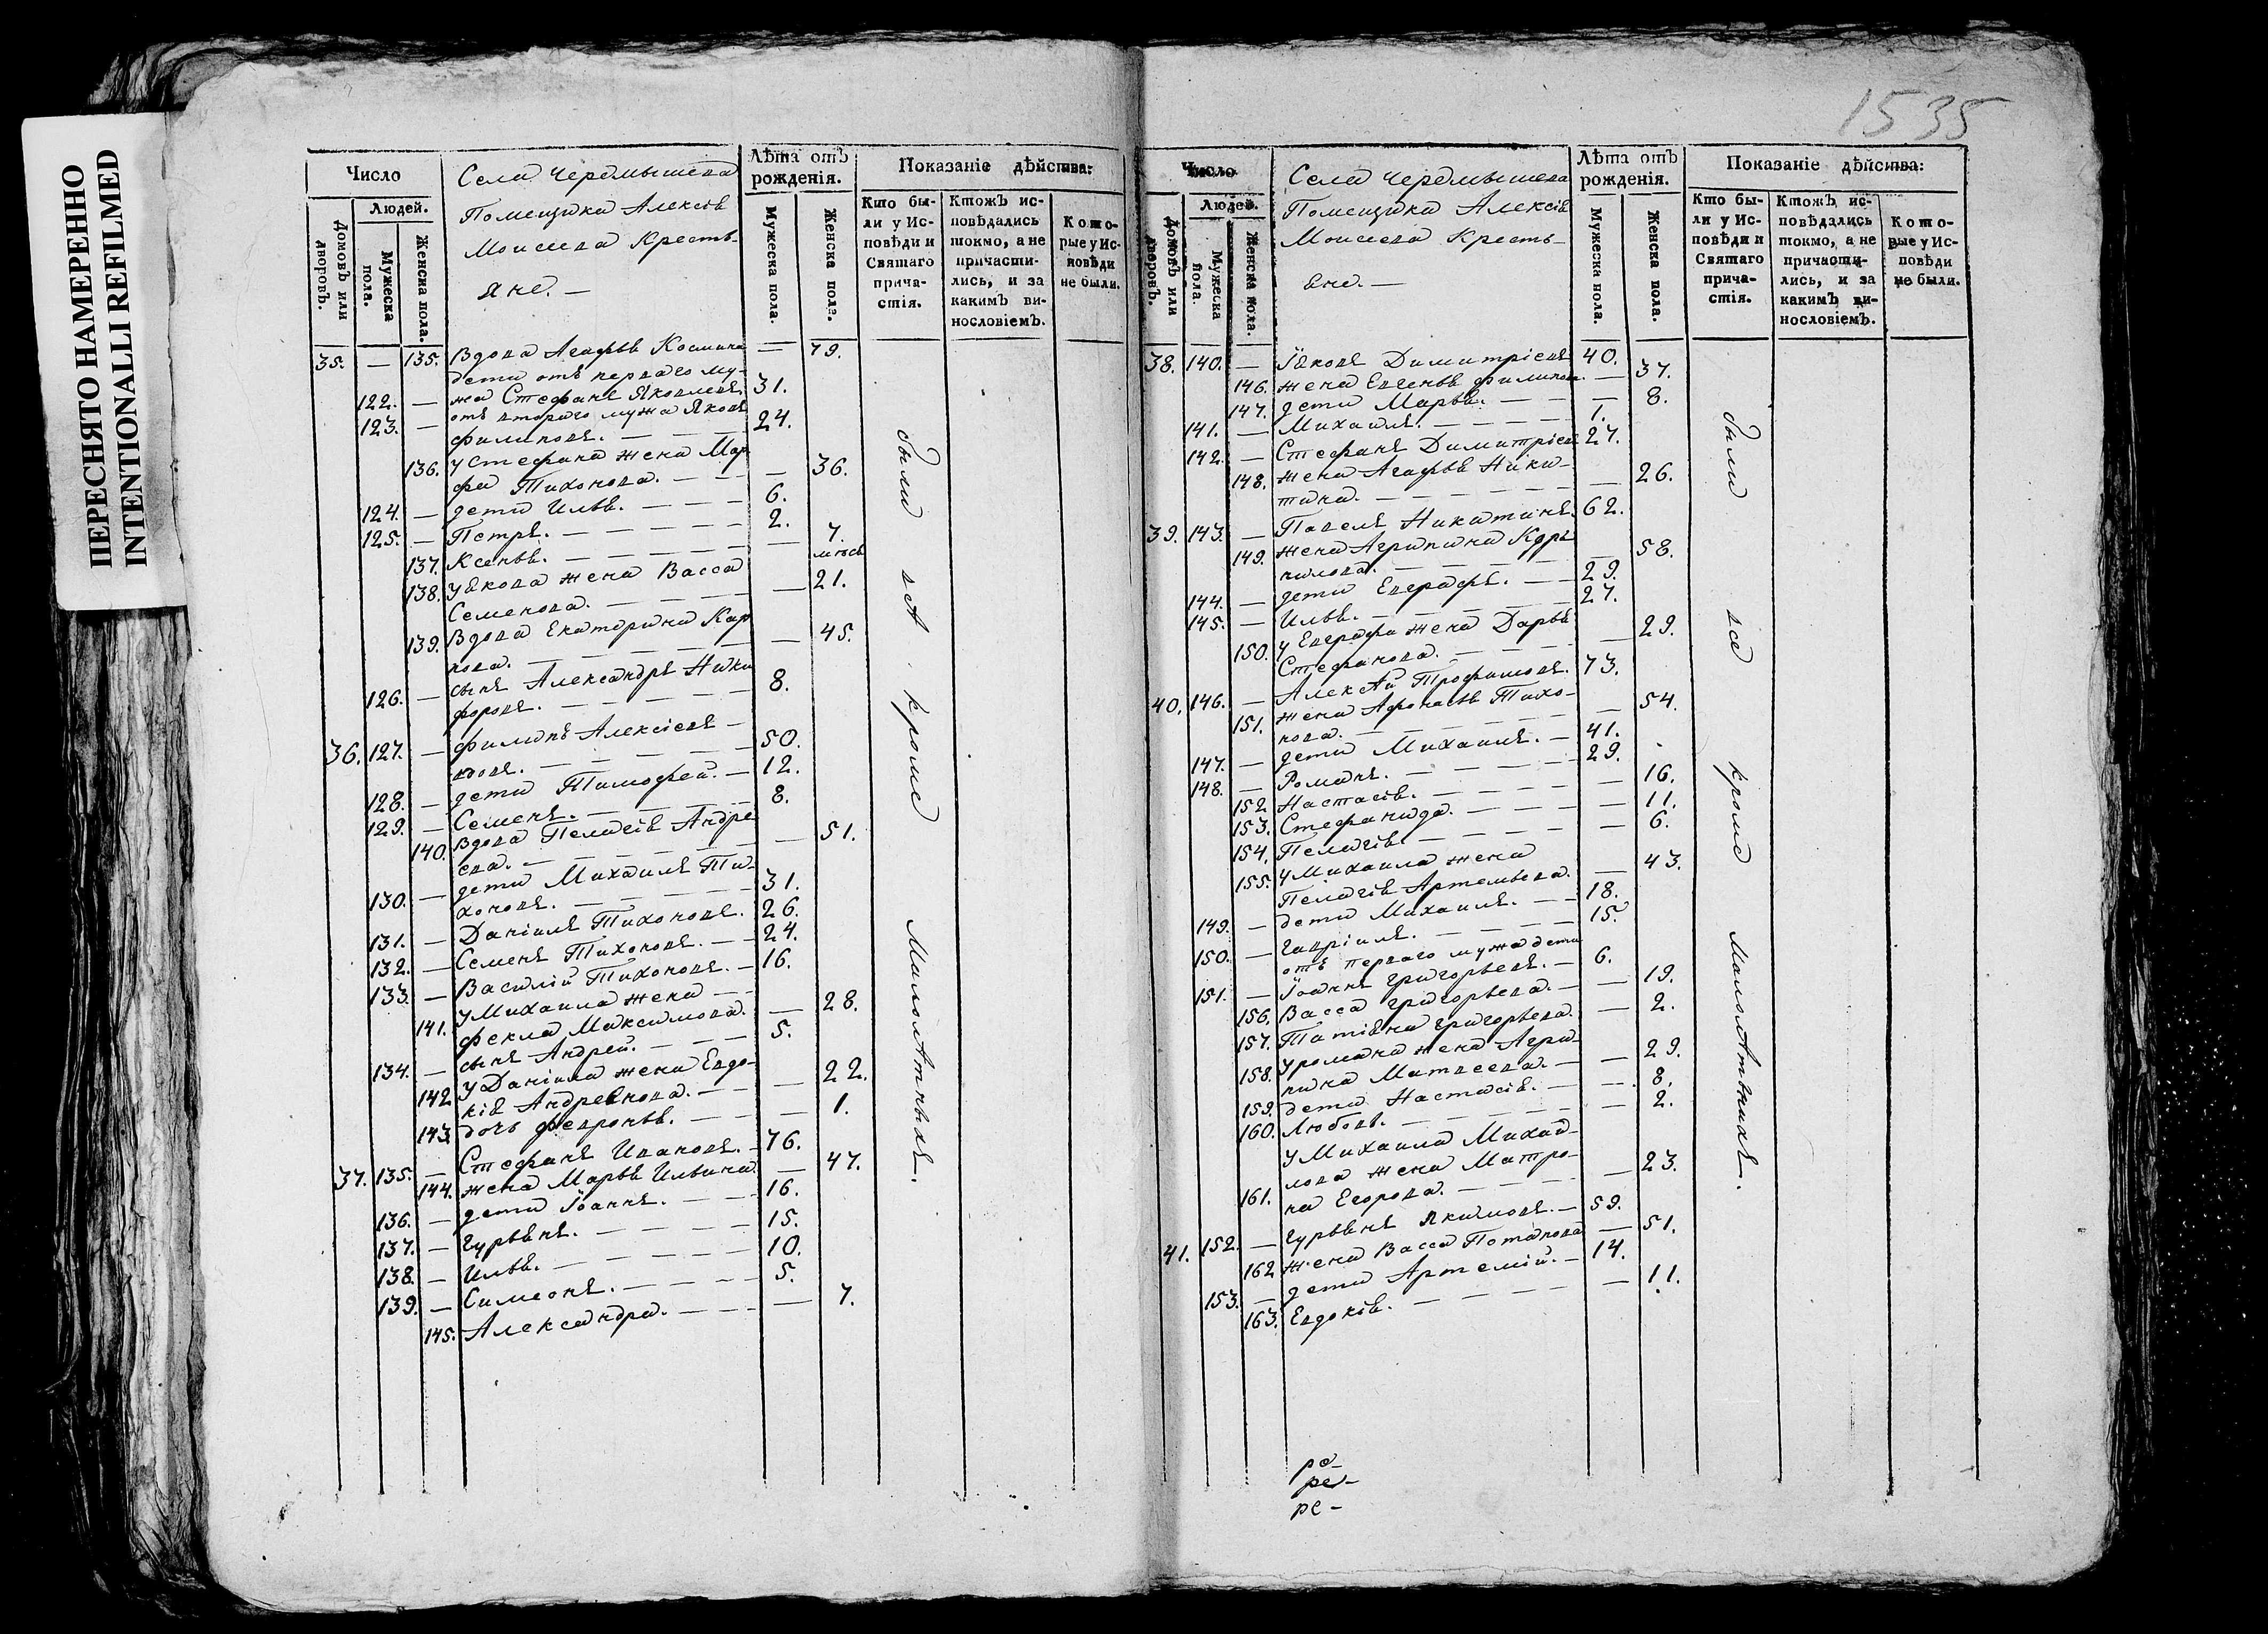 ПЕРЕСНЯТО НАМЕРЕННО
INTENTIONALLI REFILMED
1535
Число
Людей.
Домовъ или дворовъ.
Мужеска пола.
Женска пола.
Села Черемышева
Помещика Алексія
Моисеева Кресть-
яне. —
Лѣта отъ
рожденія.
Мужеска пола.
Женска пола.
Показаніе дѣйства:
Кто бы-
ли у Ис-
повѣди и
Святаго
прича-
стія.
Ктожъ ис-
повѣдались
токмо, а не
причасти-
лись, и за
какимъ ви-
нословіемъ.
Кото-
рые у Ис-
повѣди
не были.
35. — 135. Вдова Агафья Космина — 79.
дети отъ перваго му-
122. — жа Стефанъ Яковлевъ 31.
отъ втораго мужа Яковъ
123. — Филиповъ. — 24.
136. у Стефана жена Мар
фа Тихонова. — — 36.
124. — дети Илья. — 6.
125. — Петръ. — 2.
137. Ксенья. — — 7.
мѣсѣ
138. у Якова жена Васса
Семенова. — — 21.
139. Вдова Екатерина Кар
пова. — — 45.
126. — сынъ Александръ Ники
форовъ. — 8.
36. 127. — Филипъ Алексіевъ —
вдовъ. — 50.
128. — дети Тимофей. — 12.
129. — Семенъ. — 8.
140. Вдова Пелагія Андре
ева. — — 51.
130. — дети Михаилъ Ти-
хоновъ. — 31.
131. — Даніилъ Тихоновъ. 26.
132. — Семенъ Тихоновъ. — 24.
133. — Василій Тихоновъ. — 16.
у Михаила жена —
141. Фекла Максимова. — 28.
134. — сынъ Андрей. — 5.
у Даніила жена Евдо-
142. кія Андреянова. — — 22.
143. дочь Февронья. — — 1.
37. 135. — Стефанъ Ивановъ. — 76.
144. жена Марья Ильина — 47.
136. — дети Іоаннъ. — 16.
137. — Гурьянъ. — 15.
138. — Илья. — 10.
139. — Симеонъ. — 5.
145. Александра. — — 7.
были всѣ кроме Малолѣтныхъ.
Число
Людей.
Домовъ или дворовъ.
Мужеска пола.
Женска пола.
Села Черемышева
Помещика Алексія
Моисеева Кресть-
яне. —
Лѣта отъ
рожденія.
Мужеска пола.
Женска пола.
Показаніе дѣйства:
Кто бы-
ли у Ис-
повѣди и
Святаго
прича-
стія.
Ктожъ ис-
повѣдались
токмо, а не
причасти-
лись, и за
какимъ ви-
нословіемъ.
Кото-
рые у Ис-
повѣди
не были.
38. 140. — Яковъ Димитріевъ 40.
146. жена Евгенья Филипова. — 37.
147. дети Марья. — — 8.
141. — Михаилъ. — 1.
142. — Стефанъ Димитріевъ 27.
148. жена Агафья Ники-
тина. — — 26.
39. 143. — Павелъ Никитинъ. 62.
149. жена Агрипина Кор
нилова. — — 58.
144. — дети Евграфъ. — 29.
145. — Илья. — 27.
150. у Евграфа жена Дарья
Стефанова. — — 29.
40. 146. — Алексѣй Трофимовъ. 73.
151. жена Афонасья Тихо-
нова. — — 54.
147. — дети Михаилъ. — 41.
148. — Романъ. — 29.
152. Настасія. — — 16.
153. Стефанида. — — 11.
154. Пелагія. — — 6.
155. у Михаила жена
Пелагія Артемьева. — 43.
149. — дети Михаилъ. — 18.
150. — Гавріилъ. — 15.
отъ перваго мужа дети
151. — Іоаннъ Григорьевъ. — 6.
156. Васса Григорьева. — — 19.
157. Татіяна Григорьева. — 2.
158. у Романа жена Агри-
пина Матвеева. — — 29.
159. дети Настасія. — — 8.
160. Любовь. — — 2.
у Михаила Михай-
лова жена Матро-
161. на Егорова. — — 23.
41. 152. — Гурьянъ Якимовъ. — 59.
162. жена Васса Потапова — 51.
153. — дети Артемій. — 14.
163. Евдокія. — — 11.
были всѣ кроме Малолѣтнихъ.
ре-
ре-
ре-